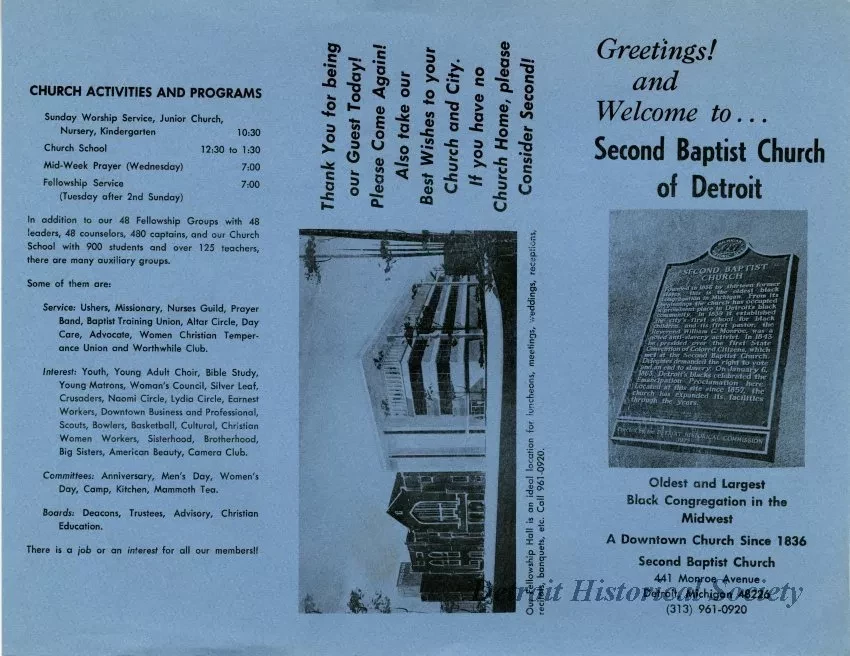 CHURCH ACTIVITIES AND PROGRAMS
Sunday Worship Service, Junior Church,
Nursery, Kindergarten 10:30
Church School 12:30 to 1:30
Mid-Week Prayer (Wednesday) 7:00
Fellowship Service 7:00
(Tuesday after 2nd Sunday)
In addition to our 48 Fellowship Groups with 48
leaders, 48 counselors, 480 captains, and our Church
School with 900 students and over 125 teachers,
there are many auxiliary groups.
Some of them are:
Service: Ushers, Missionary, Nurses Guild, Prayer
Band, Baptist Training Union, Altar Circle, Day
Care, Advocate, Women Christian Temper-
ance Union and Worthwhile Club.
Interest: Youth, Young Adult Choir, Bible Study,
Young Matrons, Woman's Council, Silver Leaf,
Crusaders, Naomi Circle, Lydia Circle, Earnest
Workers, Downtown Business and Professional,
Scouts, Bowlers, Basketball, Cultural, Christian
Women Workers, Sisterhood, Brotherhood,
Big Sisters, American Beauty, Camera Club.
Committees: Anniversary, Men's Day, Women's
Day, Camp, Kitchen, Mammoth Tea.
Boards: Deacons, Trustees, Advisory, Christian
Education.
There is a job or an interest for all our members!!
Thank You for being
our Guest Today!
Please Come Again!
Also take our
Best Wishes to your
Church and City.
If you have no
Church Home, please
Consider Second!
Our Fellowship Hall is an ideal location for luncheons, meetings, weddings, receptions,
recitals, banquets, etc. Call 961-0920.
Greetings!
and
Welcome to...
Second Baptist Church
of Detroit
SECOND BAPTIST
CHURCH
Founded in 1836 by thirteen former
slaves, this is the oldest black
congregation in Michigan. From its
beginning the church has occupied
a prominent place in Detroit's black
community. In 1839 it established
the city's first school for black
children, and its first pastor, the
Reverend William C. Monroe, was a
noted anti-slavery activist. In 1843
he presided over the first State
Convention of Colored Citizens, which
met at the Second Baptist Church.
Delegates demanded the right to vote
and an end to slavery. On January 6,
1863, Detroit's blacks celebrated the
Emancipation Proclamation here.
Located at this site since 1857, the
church has expanded its facilities
through the years.
HISTORICAL COMMISSION
Oldest and Largest
Black Congregation in the
Midwest
A Downtown Church Since 1836
Second Baptist Church
441 Monroe Avenue
Detroit, Michigan 48226
(313) 961-0920
Detroit Historical Society